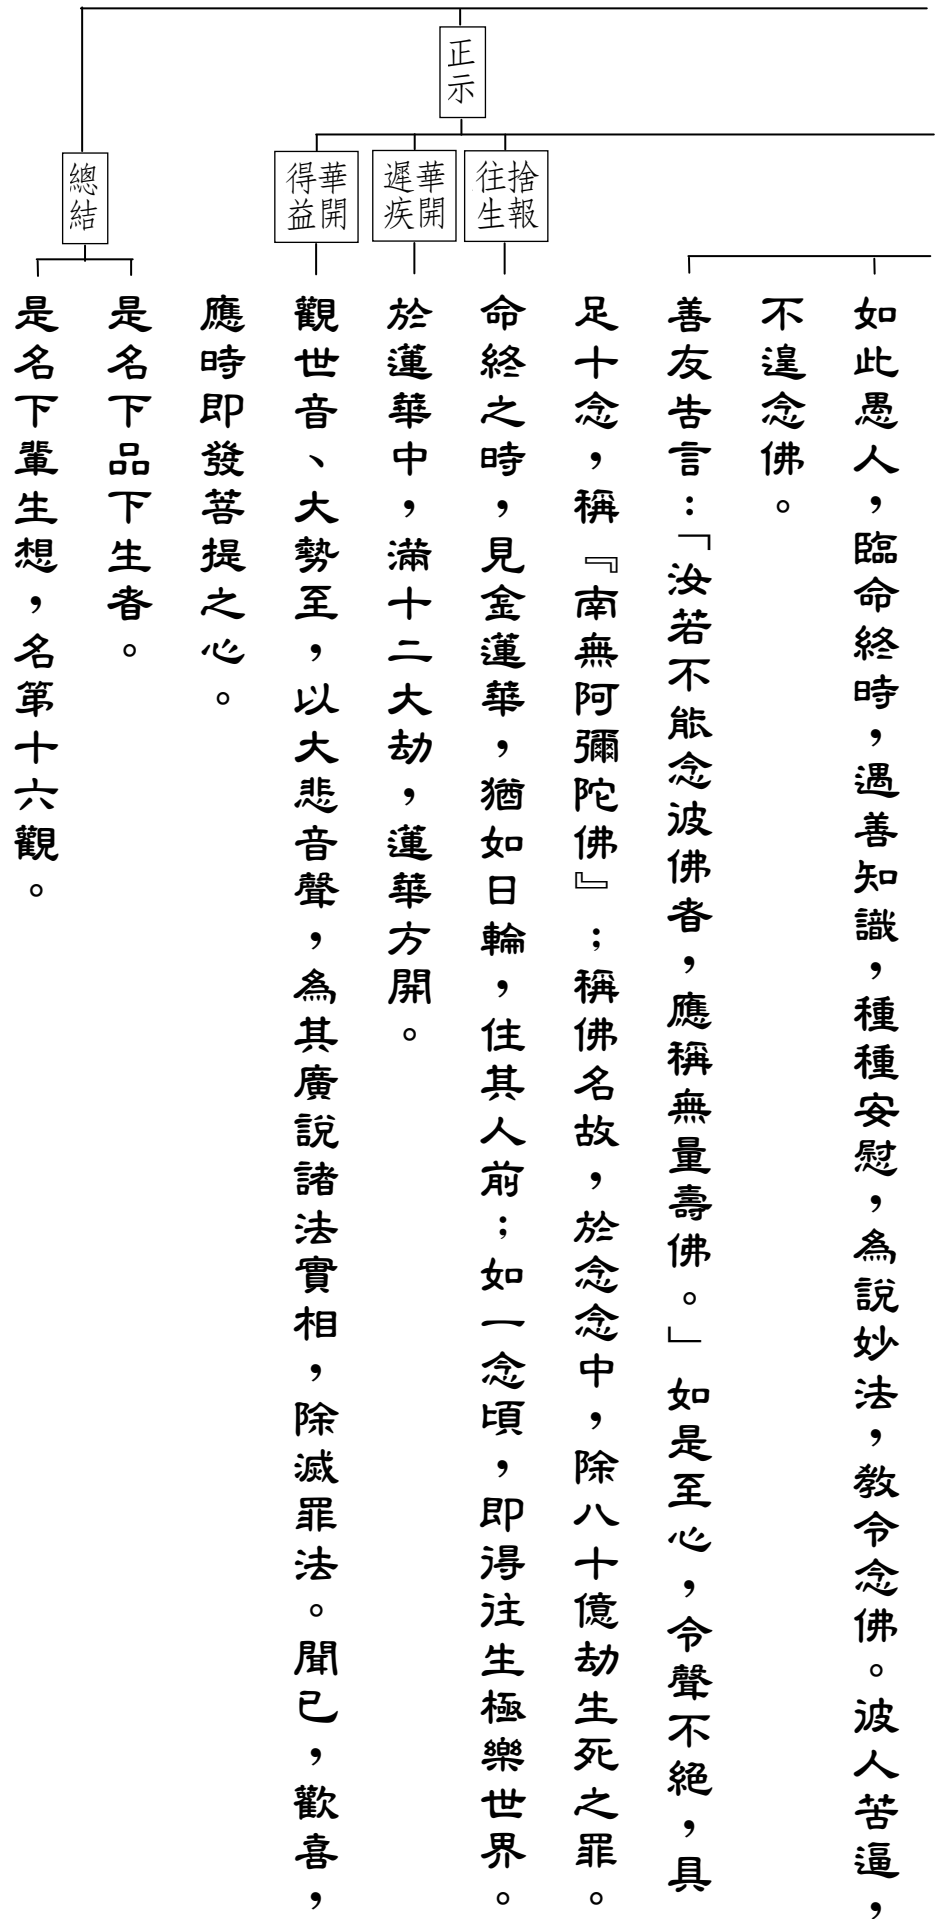 正示
捨報
往生
華開
遲疾
華開
得益
總結
如此愚人，臨命終時，遇善知識，種種安慰，為說妙法，教令念佛。彼人苦逼，
不遑念佛。
善友告言：「汝若不能念彼佛者，應稱無量壽佛。」如是至心，令聲不絕，具
足十念，稱『南無阿彌陀佛』；稱佛名故，於念念中，除八十億劫生死之罪。
命終之時，見金蓮華，猶如日輪，住其人前；如一念頃，即得往生極樂世界。
於蓮華中，滿十二大劫，蓮華方開。
觀世音、大勢至，以大悲音聲，為其廣說諸法實相，除滅罪法。聞已，歡喜，
應時即發菩提之心。
是名下品下生者。
是名下輩生想，名第十六觀。